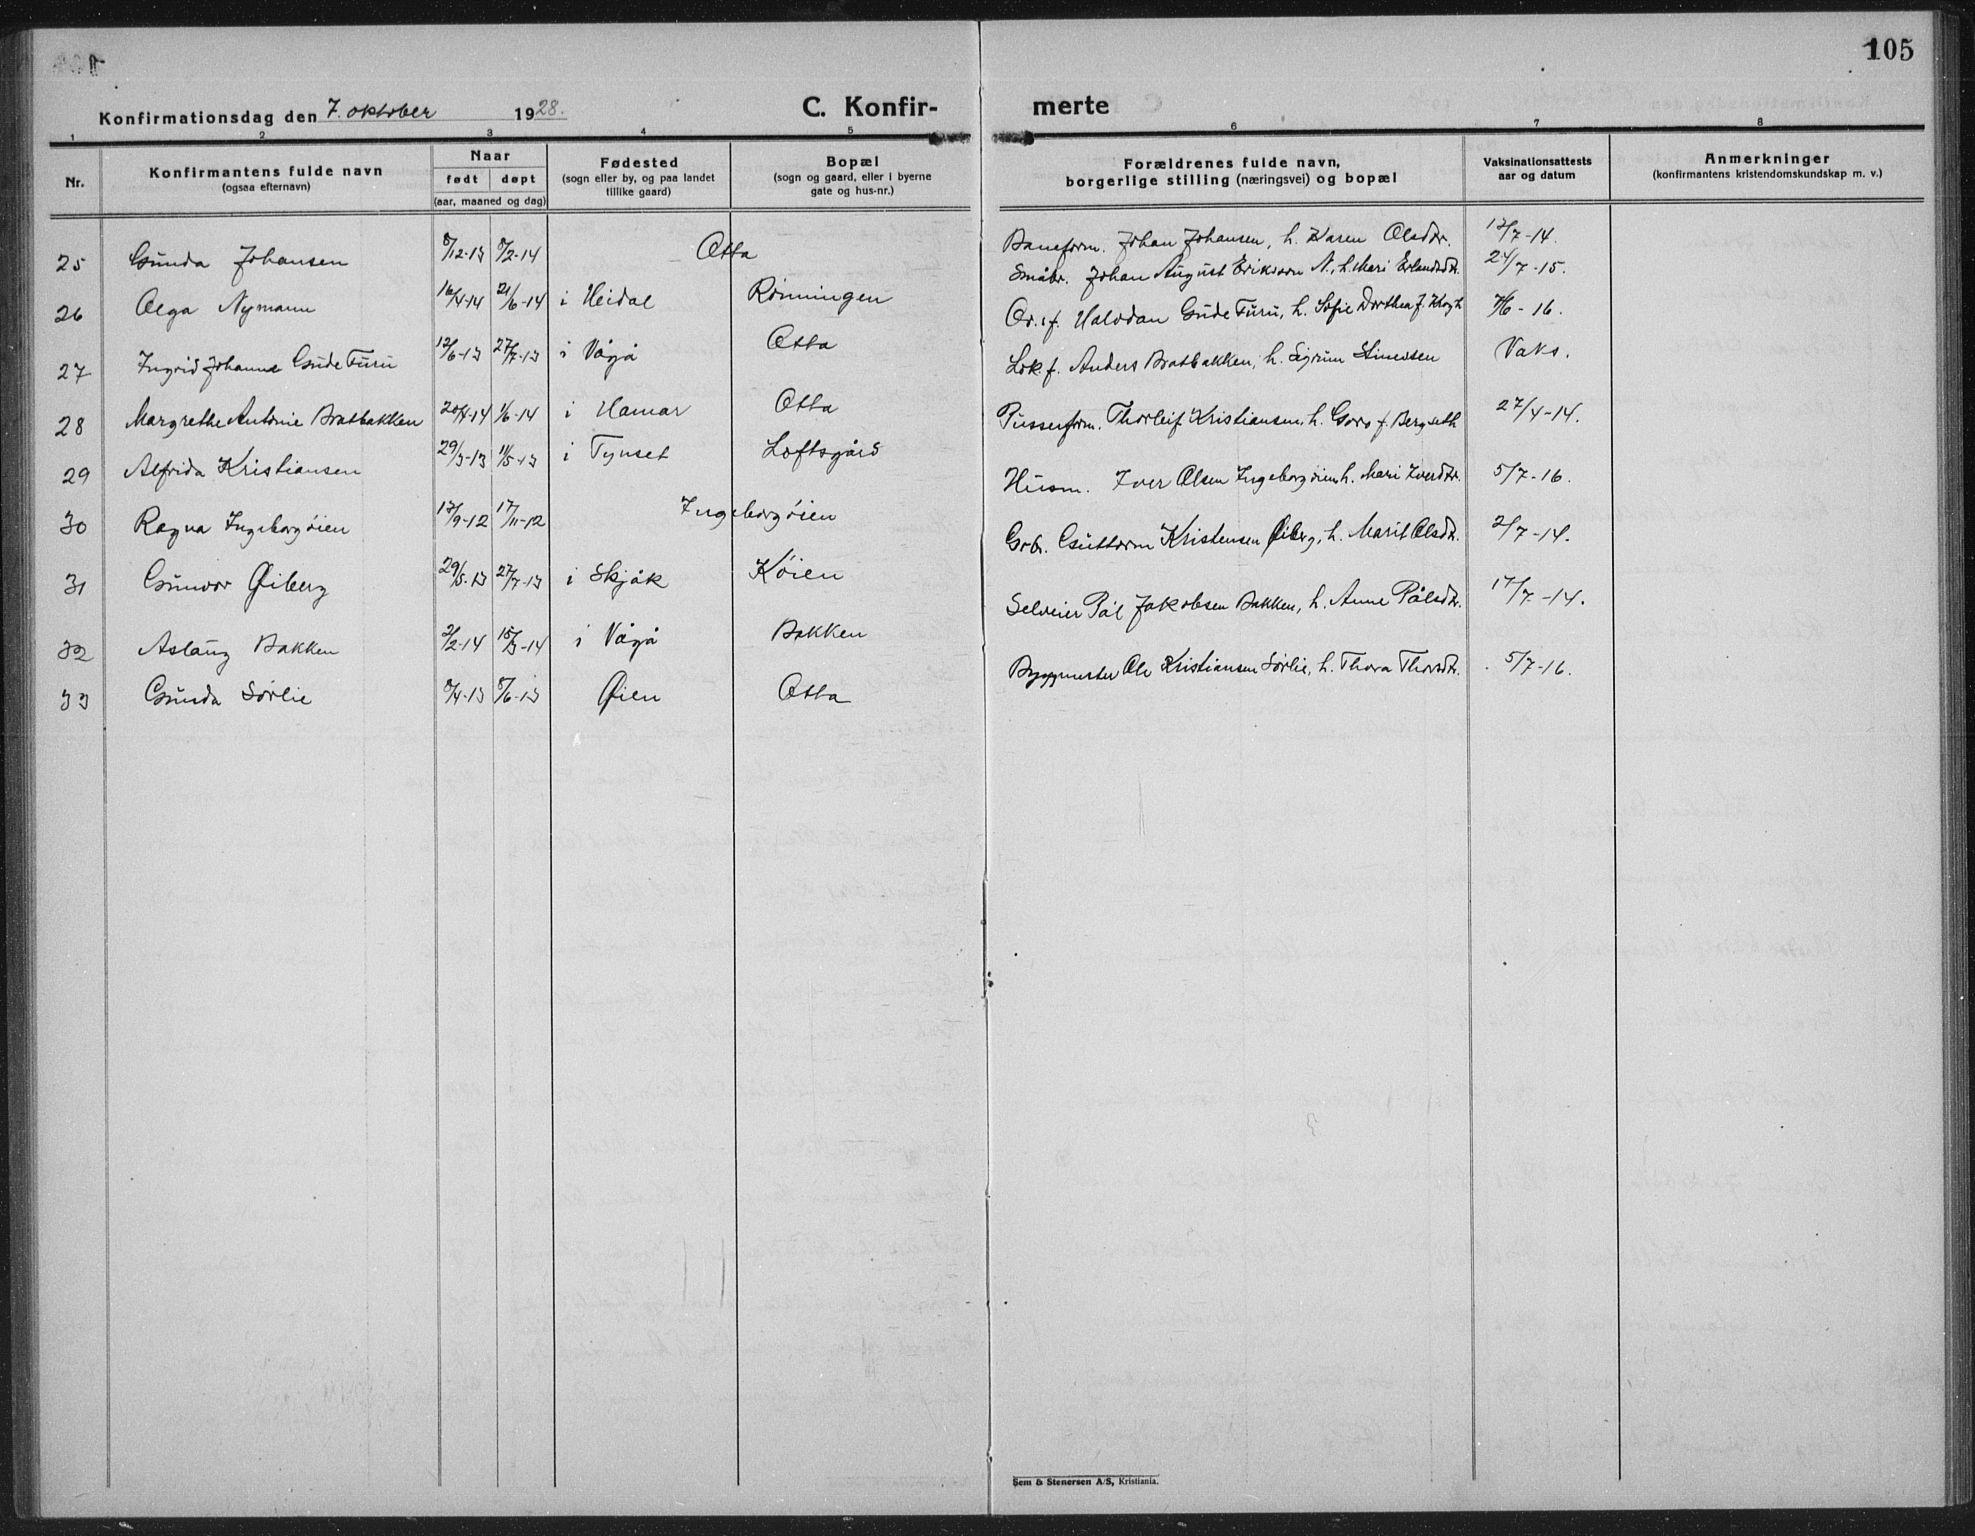 105
Konfirmationsdag den 7. oktober 1928.
C. Konfirmerte
1 2 3 4 5 6 7 8
Nr.
Konfirmantens fulde navn
(ogsaa efternavn)
Naar
født døpt
(aar, maaned og dag)
Fødested
(sogn eller by, og paa landet
tillike gaard)
Bopæl
(sogn og gaard, eller i byerne
gate og hus-nr.)
Forældrenes fulde navn,
borgerlige stilling (næringsvei) og bopæl
Vaksinationsattests
aar og datum
Anmerkninger
(konfirmantens kristendomskundskap m. v.)
25 Gunda Johansen 8/12-13 8/2-14 Otta Baneform. Johan Johansen, h. Karen Olsdtr. 17/7-14.
26 Olga Nymann 16/4-14 21/6-14 i Heidal Rønningen Småbr. Johan August Eriksson N., h. Mari Erlandsdtr. 24/7-15.
27 Ingrid Johanne Gude Furu 12/6-13 27/7-13 i Vågå Otta Halvdan Gude Furu, h. Sofie Dorthea f. Krogh 7/6-16.
28 Margrethe Antonie Bratbakken 20/4-14 1/6-14 i Hamar Otta Lok.f. Anders Bratbakken, h. Sigrun Simensen Vaks.
29 Alfrida Kristiansen 29/3-13 11/5-13 i Tynset Loftsgård Pusserform. Thorleif Kristiansen, h. Goro f. Bergseth 27/4-14.
30 Ragna Ingeborgøien 17/9-12 17/11-12 Ingeborgøien Husm. Iver Olsen Ingeborgøien, h. Mari Iversdtr. 5/7-16.
31 Gunvor Øiberg 29/5-13 27/7-13 i Skjåk Køien Gbr. Guttorm Kristensen Øiberg, h. Marit Olsdtr. 2/7-14.
32 Aslaug Bakken 2/2-14 15/3-14 i Vågå Bakken Selveier Pål Jakobsen Bakken, h. Anne Pålsdtr. 17/7-14.
33 Gunda Sørlie 8/4-13 8/6-13 Øien Otta Byggmester Ole Kristiansen Sørlie, h. Thora Thorsdtr. 5/7-16.
Sem & Stenersen A/S, Kristiania.